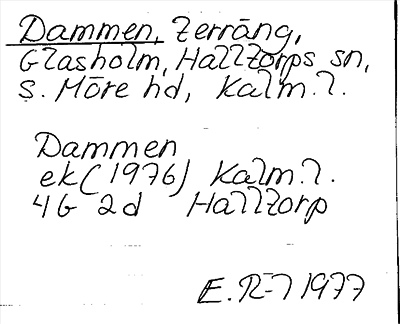 Dammen, Terräng,
Glasholm, Halltorps sn,
S. Möre hd, Kalm. l.
Dammen
ek (1976) Kalm. l.
4G 2d Halltorp
E. R-7 1977